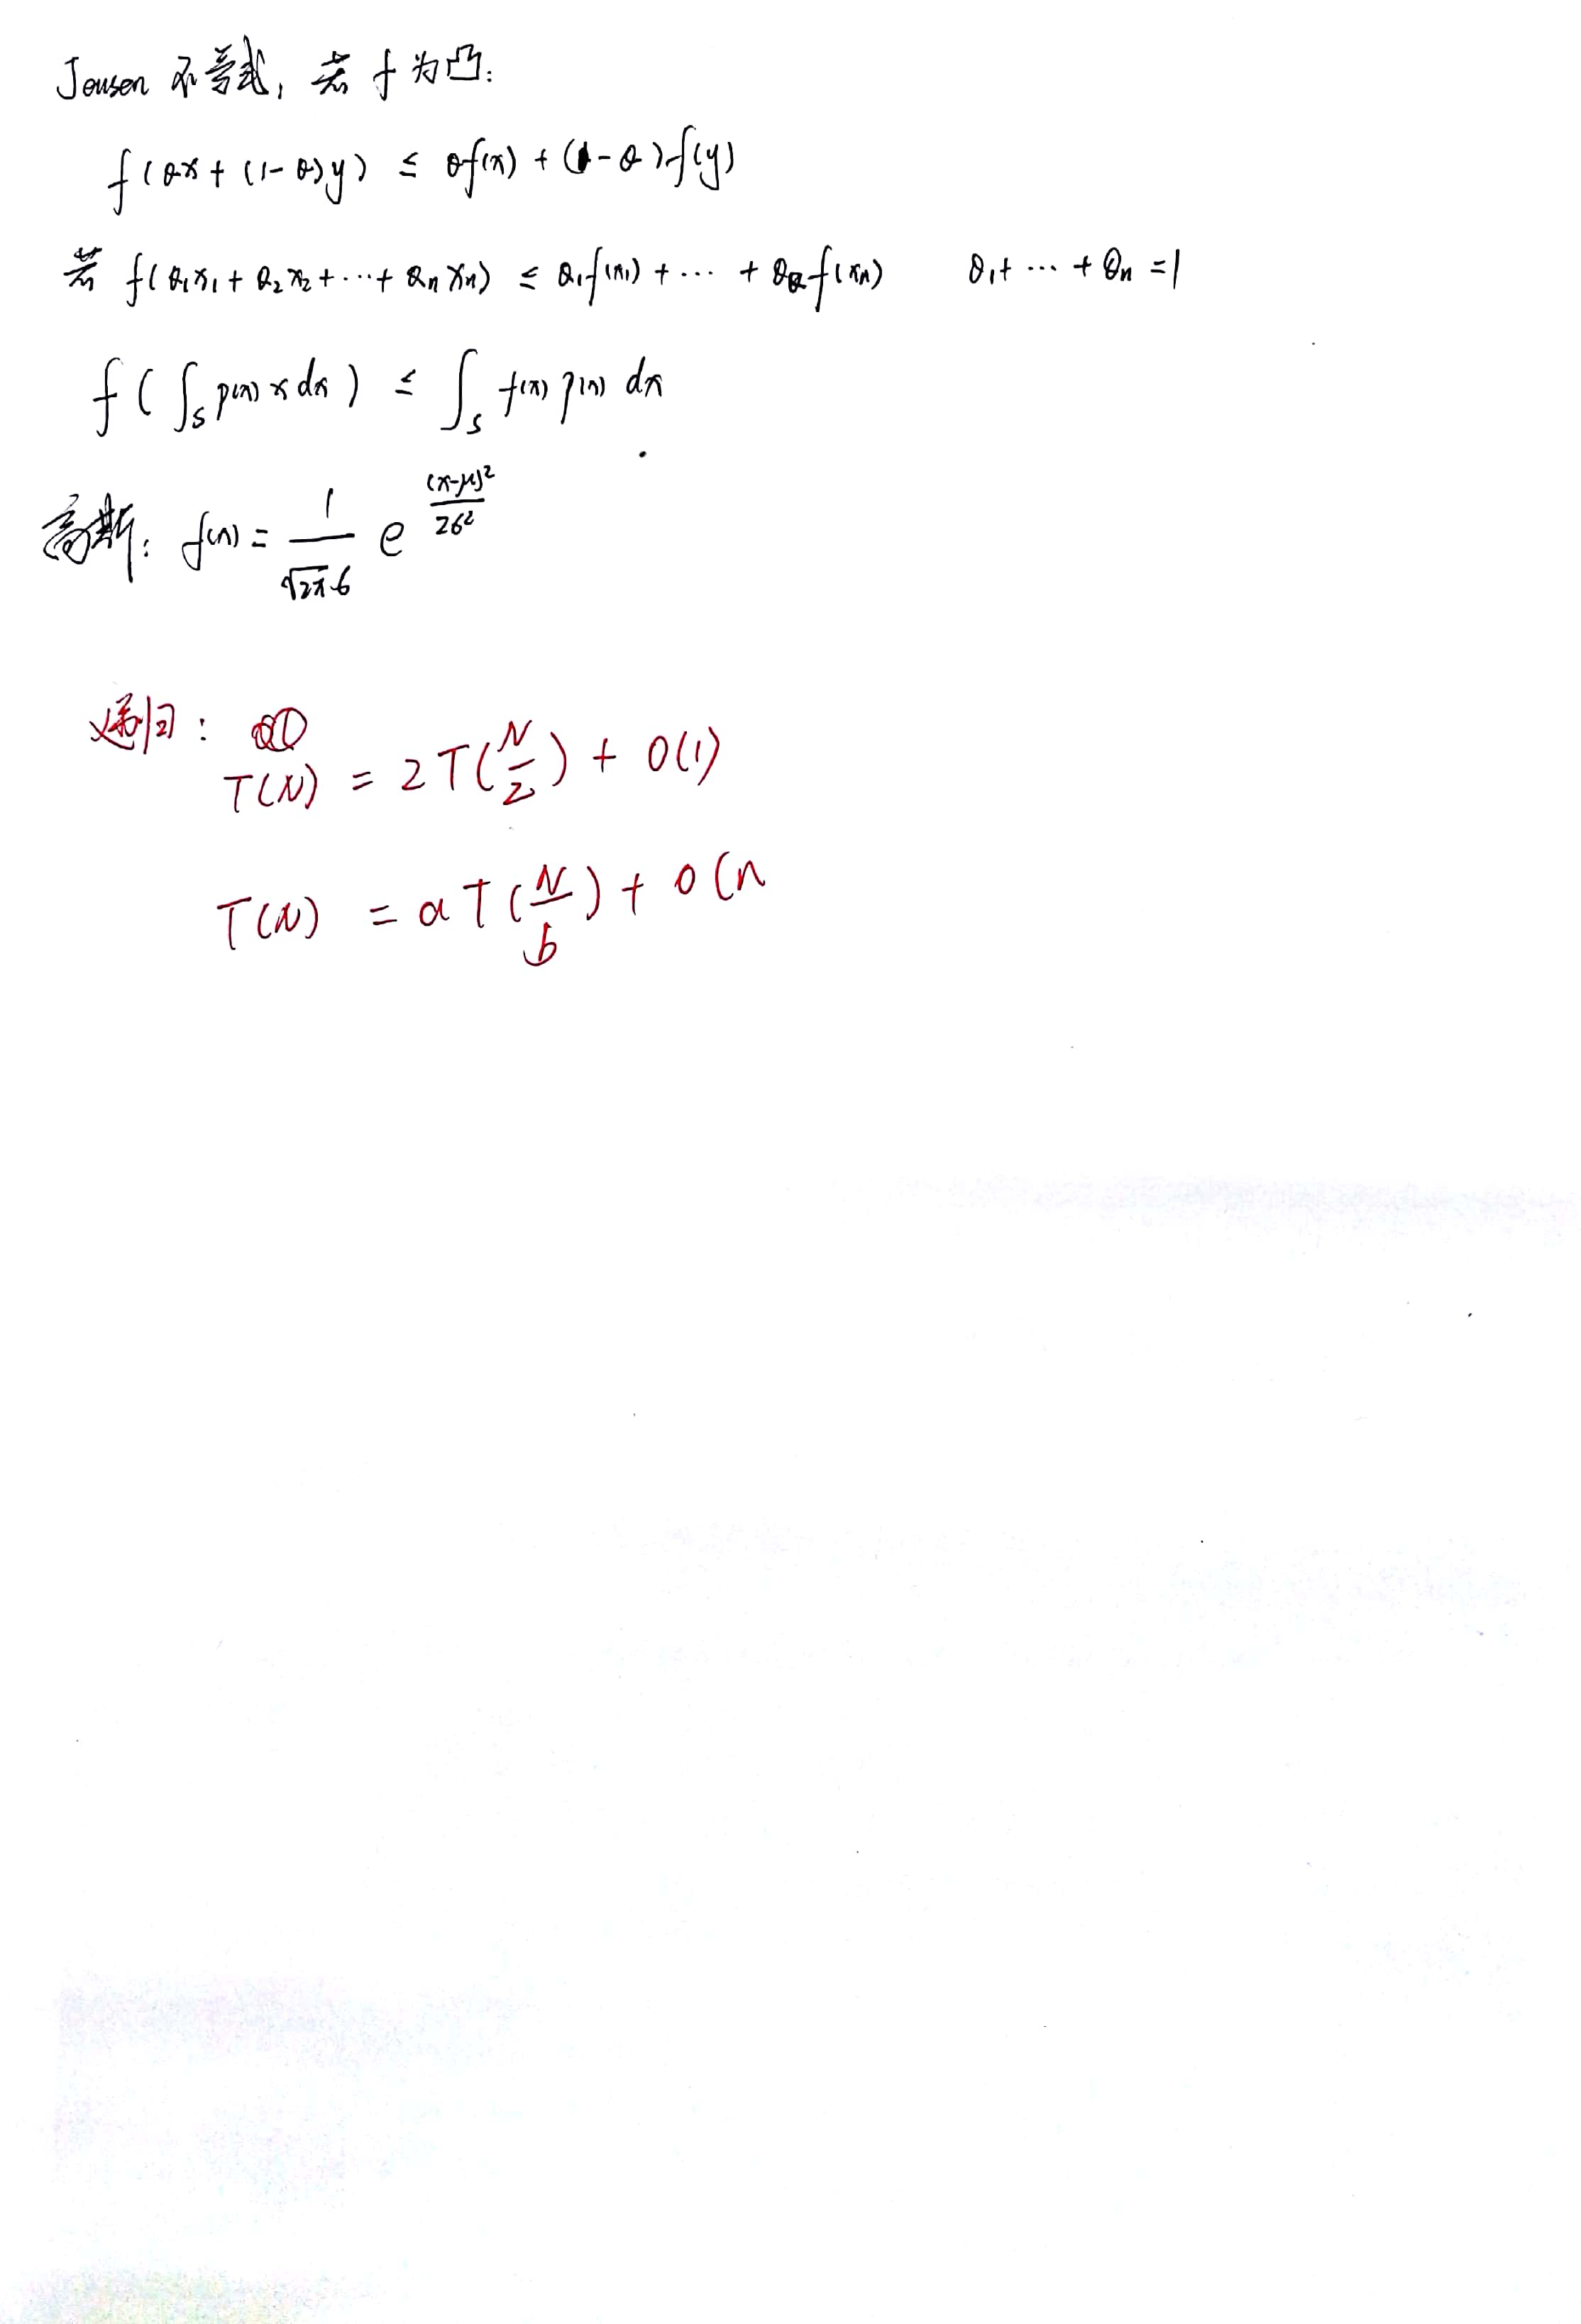 Jensen 不等式, 若 f 为凸:
f(θx + (1-θ)y) ≤ θf(x) + (1-θ)f(y)
若 f(θ₁x₁ + θ₂x₂ + ⋯ + θₙxₙ) ≤ θ₁f(x₁) + ⋯ + θₙf(xₙ) θ₁+ ⋯ + θₙ =1
f(∫ₛ p(x) x dx) ≤ ∫ₛ f(x) p(x) dx
高斯: f(x) = 1/(√2π σ) e^((x-μ)²/2σ²)
递归:
T(N) = 2T(N/2) + O(1)
T(N) = aT(N/b) + O(n